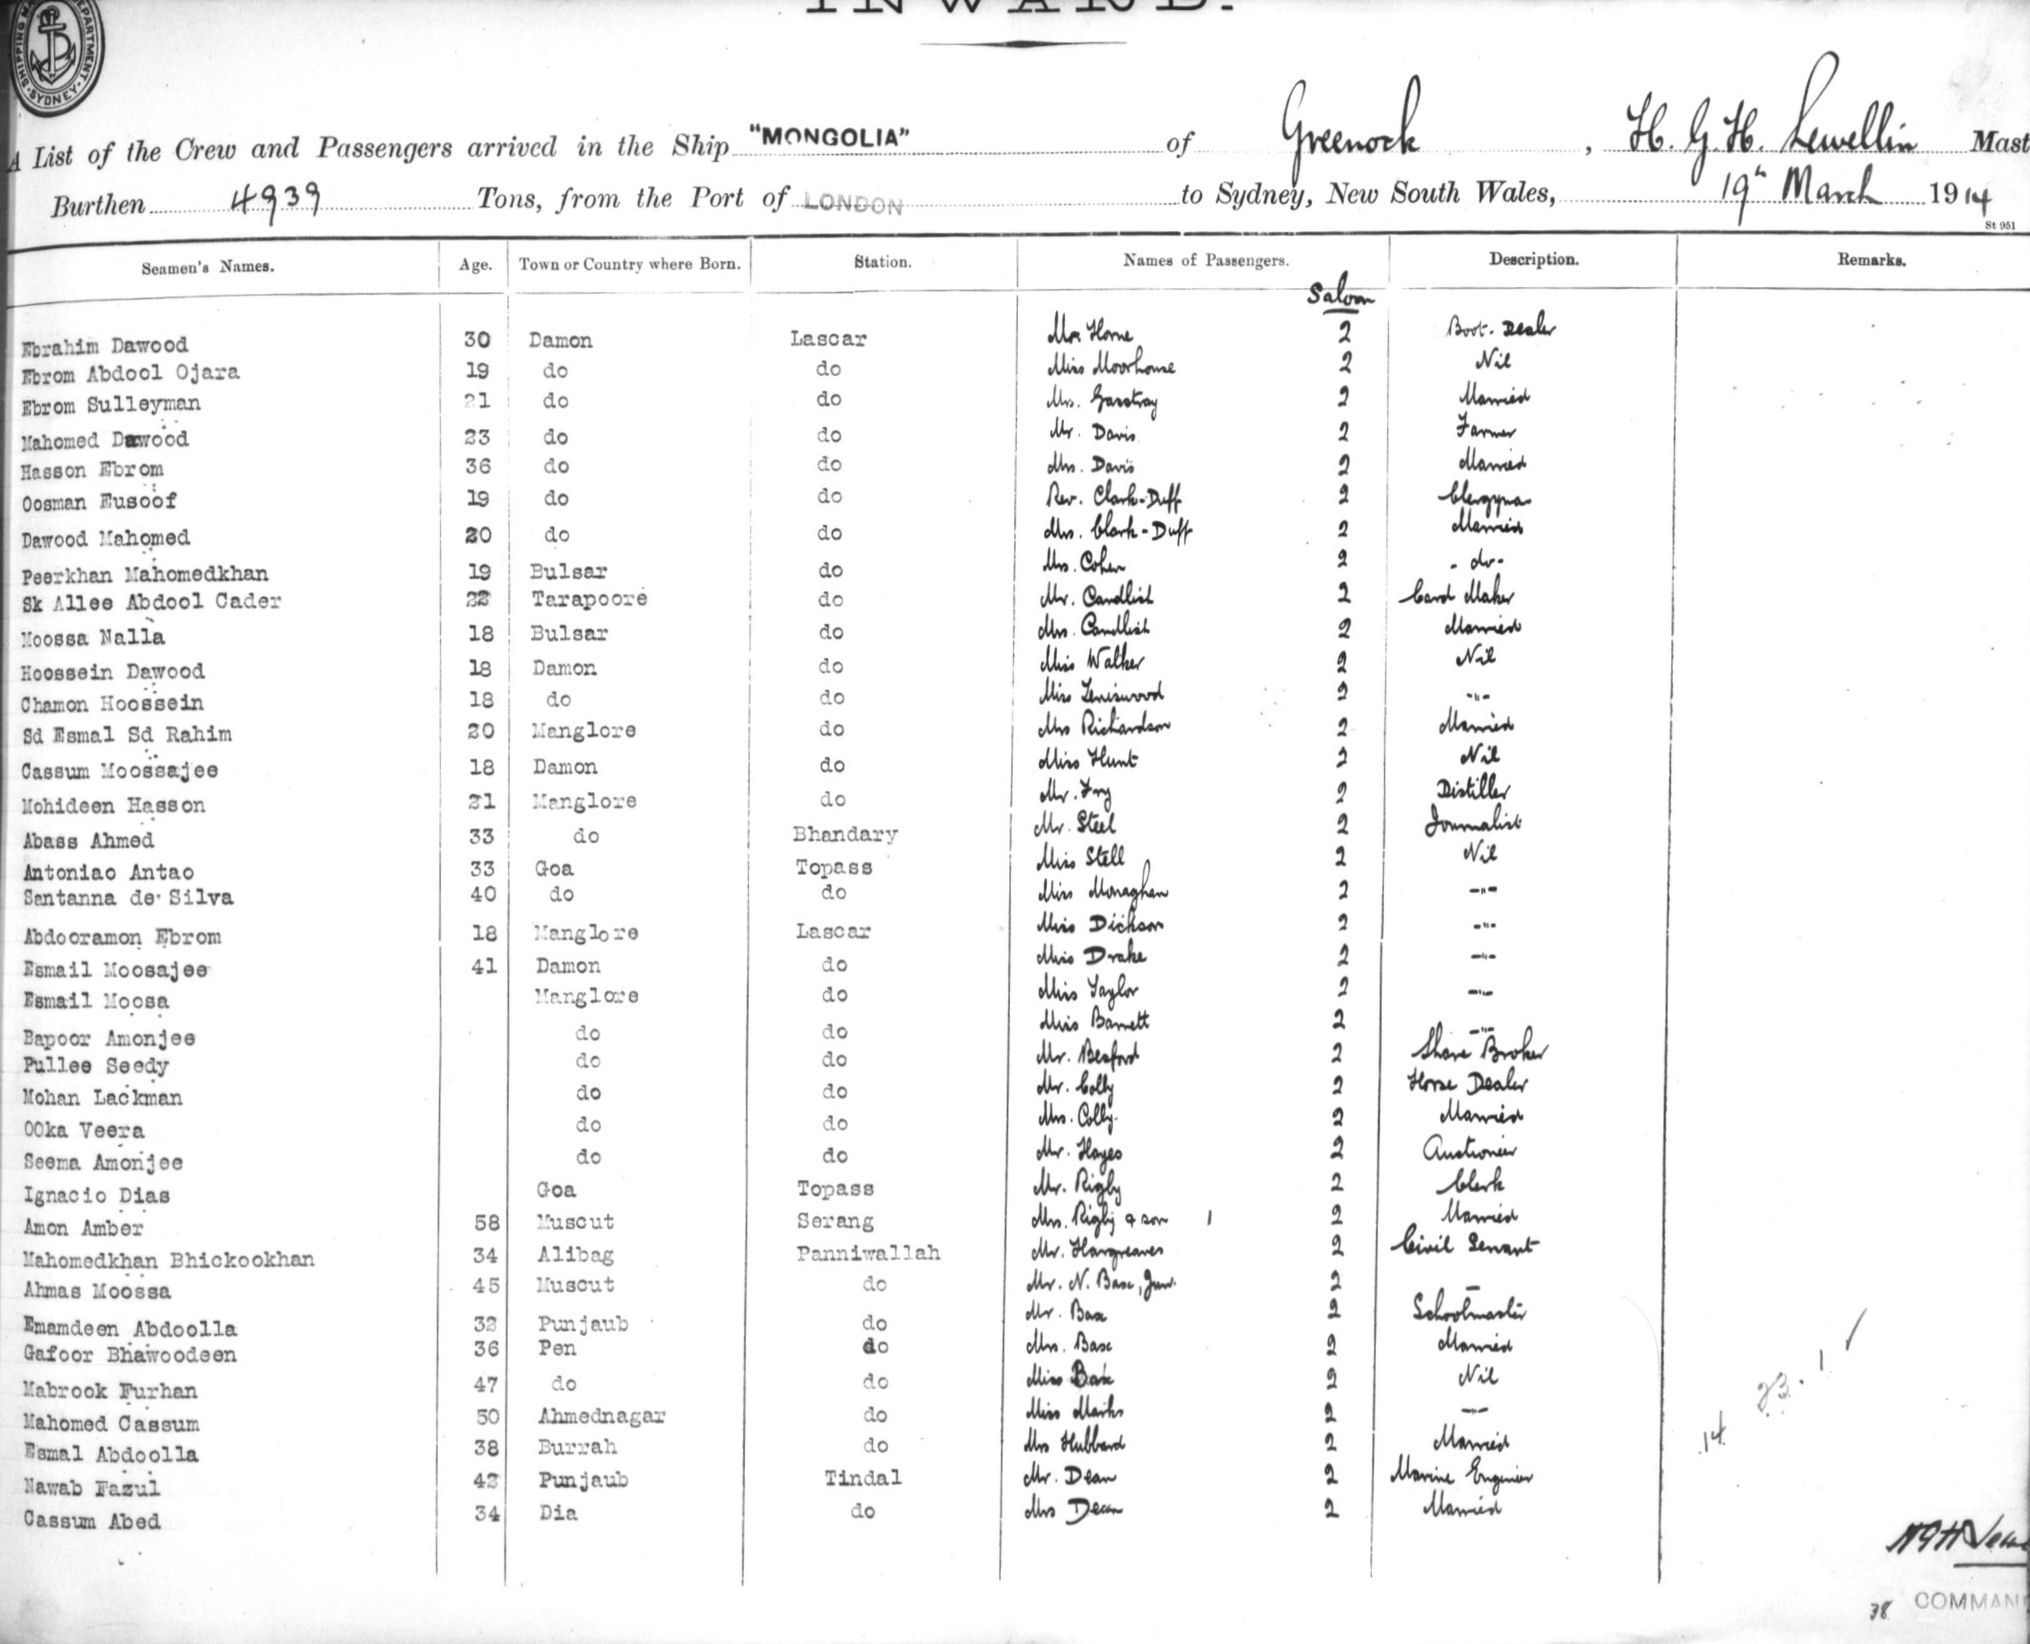 INWARD.
SHIPPING MA DEPARTMENT. SYDNEY
A List of the Crew and Passengers arrived in the Ship "MONGOLIA" of Greenock, H. G. H. Lewellin Mast
Burthen 4939 Tons, from the Port of LONDON to Sydney, New South Wales, 19th March 1914
St 951
Seamen's Names. Age. Town or Country where Born. Station. Names of Passengers. Description. Remarks.
Saloon
Ebrahim Dawood 30 Damon Lascar Mr Horne 2 Boot. Dealer
Ebrom Abdool Ojara 19 do do Miss Moorhouse 2 Nil
Ebrom Sulleyman 21 do do Mrs. 2 Married
Mahomed Dawood 23 do do Mr. Davis 2 Farmer
Hasson Ebrom 36 do do Mrs. Davis 2 Married
Oosman Eusoof 19 do do Rev. Clark-Duff 2 Clergyman
Dawood Mahomed 20 do do Mrs. Clark-Duff 2 Married
Peerkhan Mahomedkhan 19 Bulsar do Mrs. Cohen 2 - do -
Sk Allee Abdool Cader 22 Tarapoore do Mr. Candlish 2 Card Maker
Moossa Nalla 18 Bulsar do Mrs. Candlish 2 Married
Hoossein Dawood 18 Damon do Miss Walker 2 Nil
Chamon Hoossein 18 do do Miss Leniswood 2 -"-
Sd Esmal Sd Rahim 20 Manglore do Mrs Richardson 2 Married
Cassum Moossajee 18 Damon do Miss Hunt 2 Nil
Mohideen Hasson 21 Manglore do Mr. Fry 2 Distiller
Abass Ahmed 33 do Bhandary Mr. Steel 2 Journalist
Antoniao Antao 33 Goa Topass Miss Stell 2 Nil
Santanna de Silva 40 do do Miss Monaghan 2 -"-
Abdooramon Ebrom 18 Manglore Lascar Miss Dickson 2 -"-
Esmail Moosajee 41 Damon do Miss Drake 2 -"-
Esmail Moosa Manglore do Miss Taylor 2 -"-
Bapoor Amonjee do do Miss Barnett 2 -"-
Pullee Seedy do do Mr. Besford 2 Share Broker
Mohan Lackman do do Mr. Colly 2 Horse Dealer
OOka Veera do do Mrs. Colly 2 Married
Seema Amonjee do do Mr. Hayes 2 Auctioneer
Ignacio Dias Goa Topass Mr. Rigby 2 Clerk
Amon Amber 58 Muscut Serang Mrs. Rigby & son 1 2 Married
Mahomedkhan Bhickookhan 34 Alibag Panniwallah Mr. Hargreaves 2 Civil Servant
Ahmas Moossa 45 Muscut do Mr. N. Base, Junr. 2 -
Emamdeen Abdoolla 32 Punjaub do Mr. Base 2 Schoolmaster
Gafoor Bhawoodeen 36 Pen do Mrs. Base 2 Married
Mabrook Furhan 47 do do Miss Base 2 Nil
Mahomed Cassum 50 Ahmednagar do Miss Marks 2 -"-
Esmal Abdoolla 38 Burrah do Mrs Hubbard 2 Married
Nawab Fazul 42 Punjaub Tindal Mr. Dean 2 Marine Engineer
Cassum Abed 34 Dia do Mrs Dean 2 Married
23. 1
14
HGH Lew
COMMAN
38